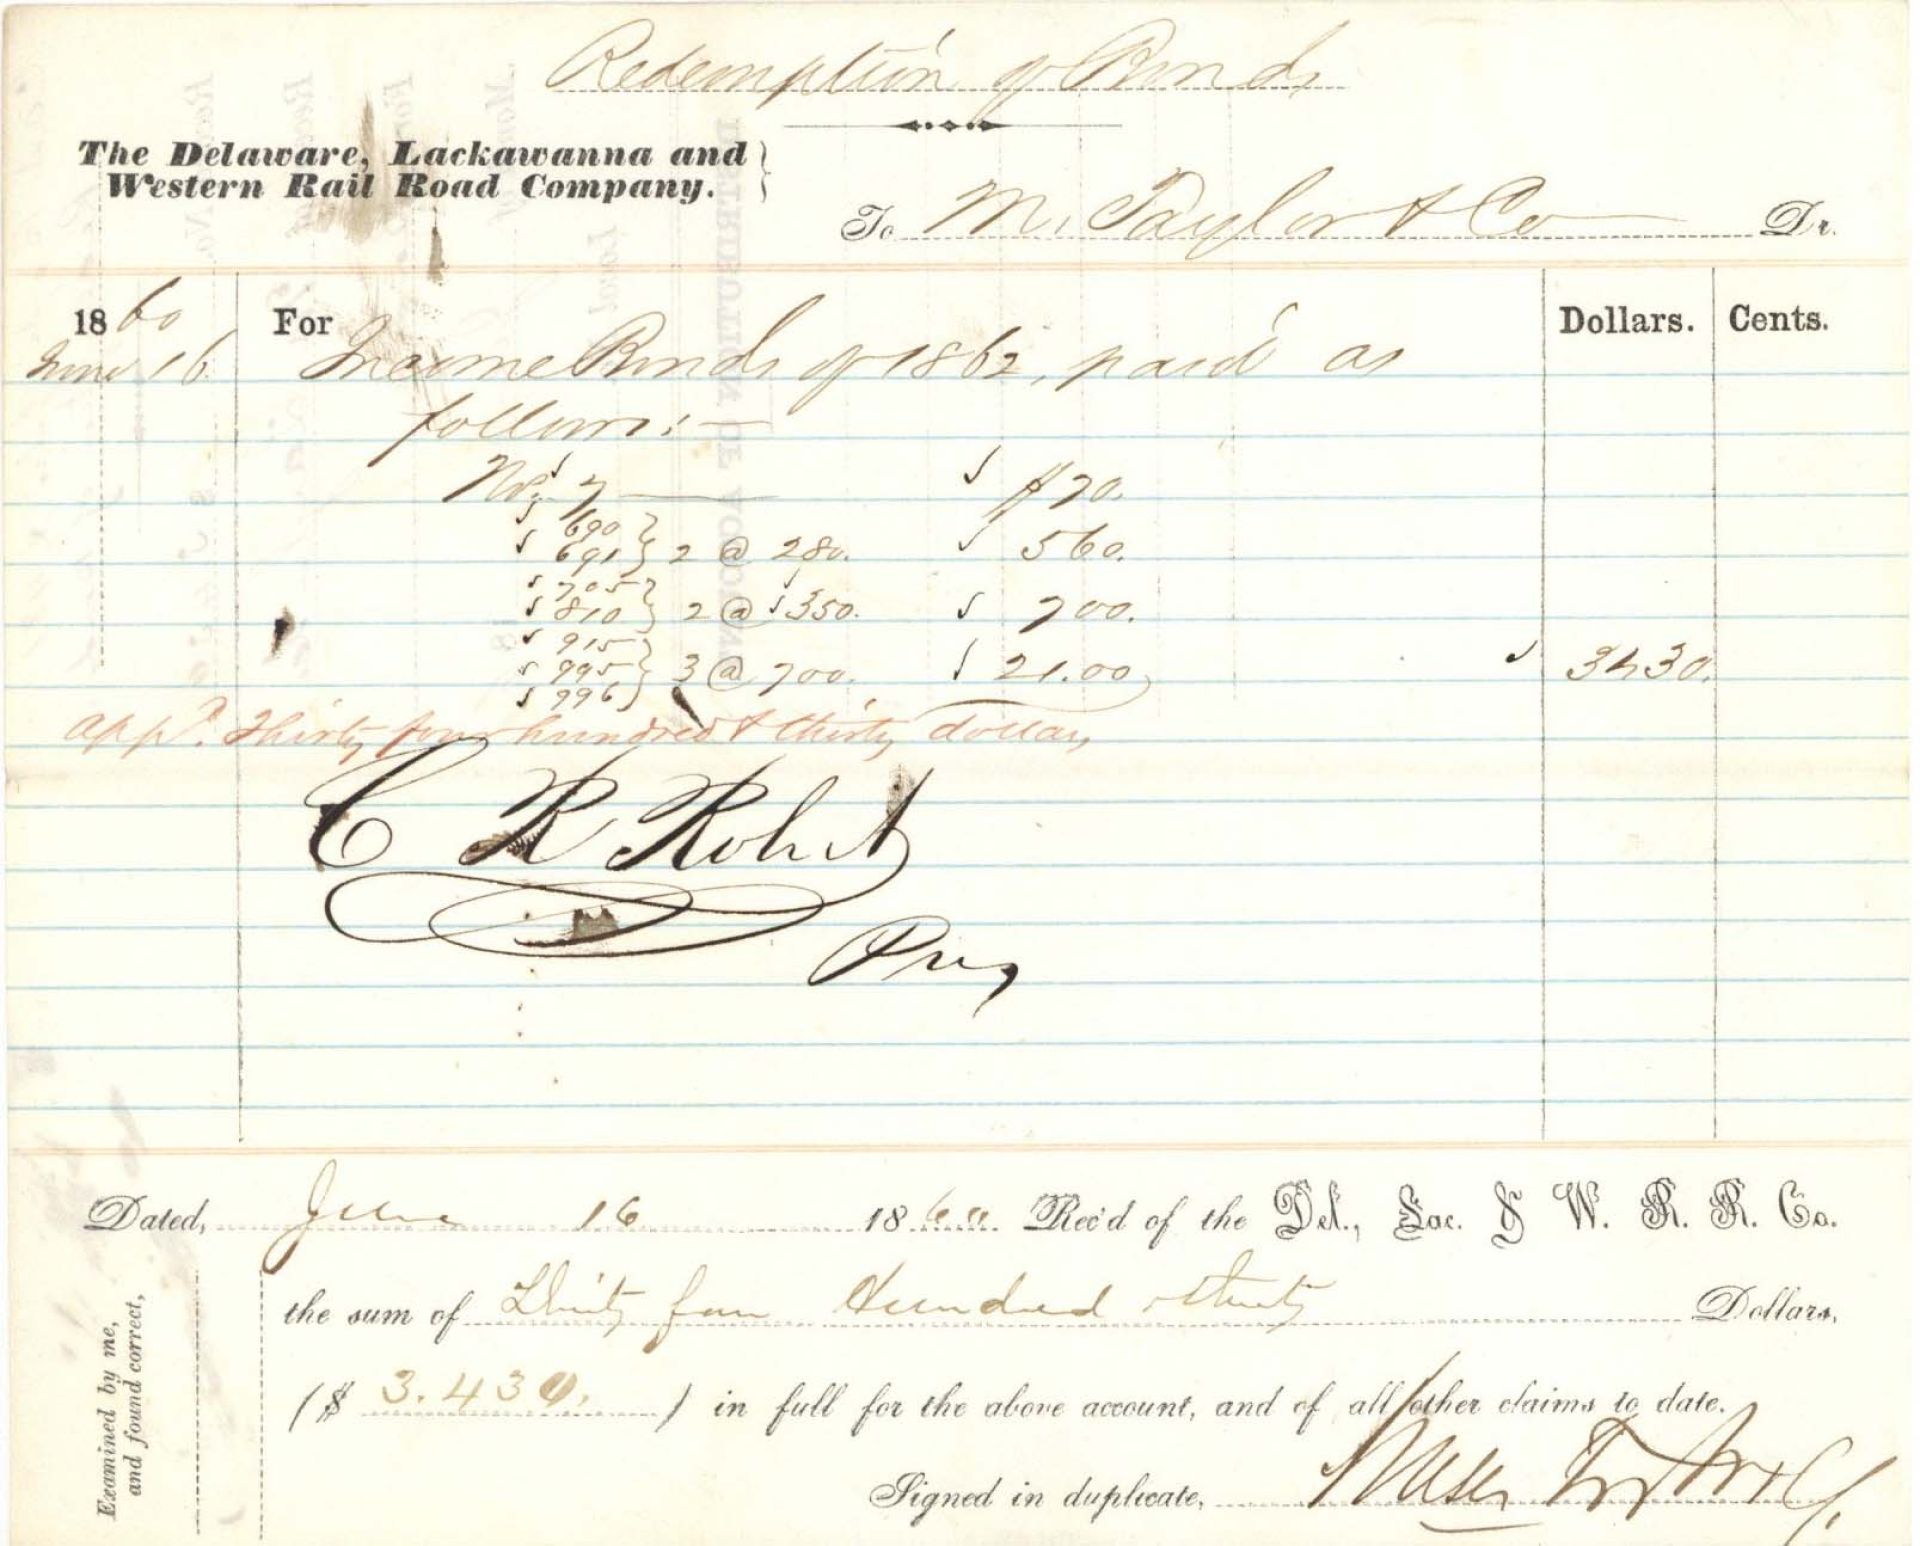 Redemption of Bonds
The Delaware, Lackawanna and
Western Rail Road Company.
To M. Taylor & Co Dr.
1860 For Dollars. Cents.
June 16 Income Bonds of 1862, paid as
follows:—
No. 7 — $70.
690
691 } 2 @ 280. 560.
705
810 } 2 @ 350. 700.
915
995 } 3 @ 700. 21.00
996
3430.
app.d Thirty four hundred & thirty dollars
C R Robert
Pres
Dated, June 16 1860 Rec'd of the Del., Lac. & W. R. R. Co.
the sum of Thirty four Hundred & thirty Dollars,
($ 3.430. ) in full for the above account, and of all other claims to date.
Signed in duplicate, Moses Taylor & Co
Examined by me,
and found correct,